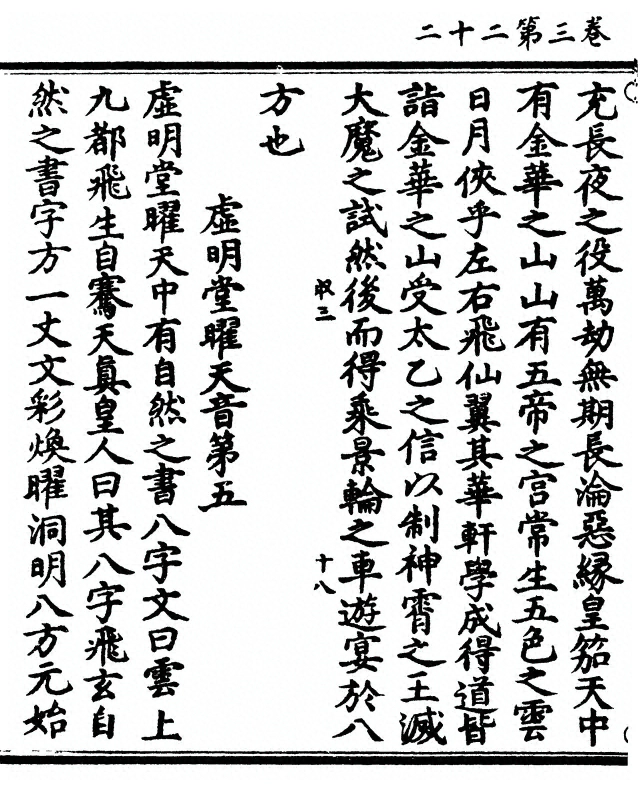 卷三第二十二
充長夜之役萬劫無期長淪惡緣皇笳天中
有金華之山山有五帝之宮常生五色之雲
日月俠乎左右飛仙翼其華軒學成得道皆
詣金華之山受太乙之信以制神霄之王滅
大魔之試然後而得乘景輪之車遊宴於八
収三
十八
方也
虛明堂曜天音第五
虛明堂曜天中有自然之書八字文曰雲上
九都飛生自騫天真皇人曰其八字飛玄自
然之書字方一丈文彩煥曜洞明八方元始